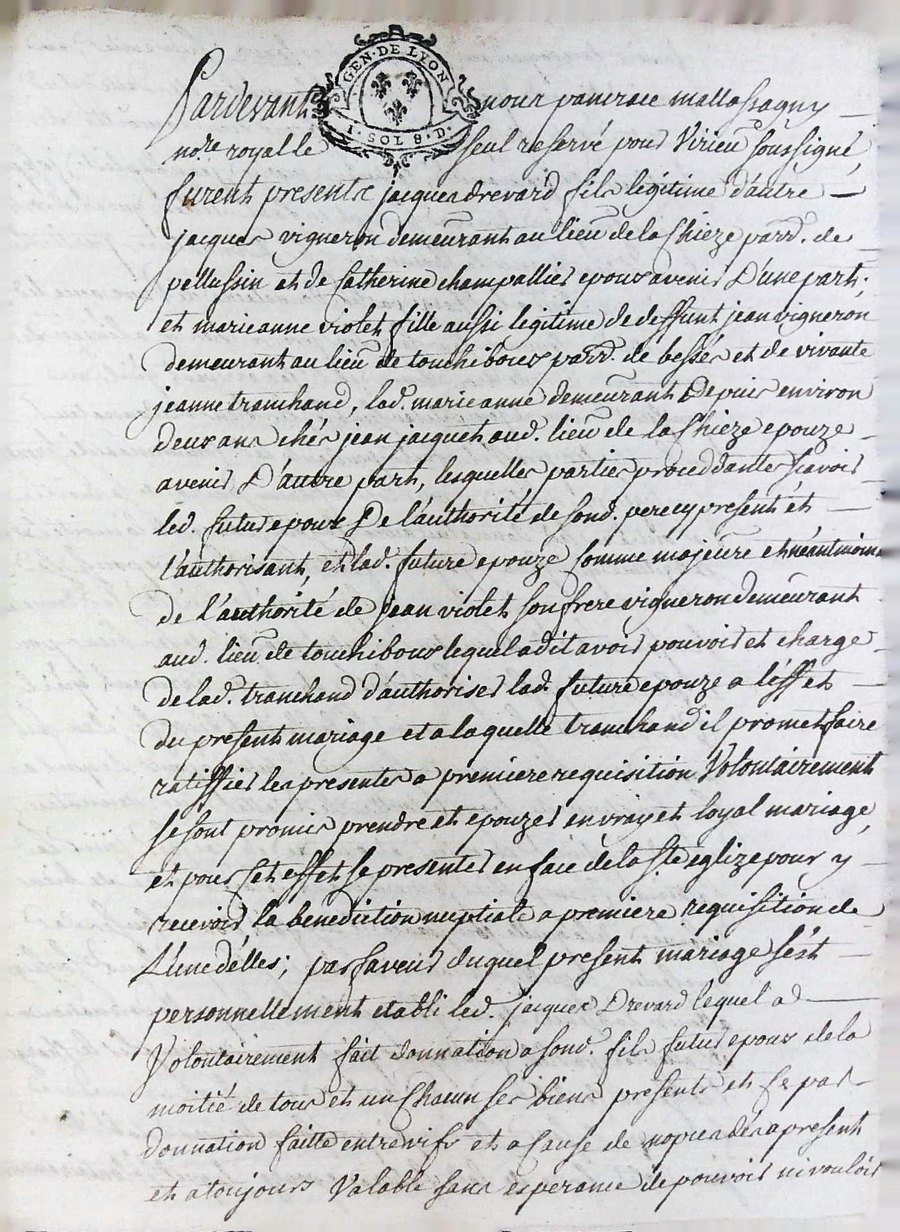 GEN · DE LYON
1 · SOL 8 · D ·
Pardevant nous pancrace mallassagny
no.re royal le seul reservé pour Virieu soussigné
furent presents jacques drevard fils legitime d'autre
jacques vigneron demeurant au lieu de la Chieze parr. de
pellussin et de Catherine champallier epoux avenir D'une part;
et marie anne violet fille aussi legitime de deffunt jean vigneron
demeurant au lieu de touchiboux parr. de bessés et de vivante
jeanne tranchand, lad. marie anne demeurant Depuis environ
deux ans chés jean jacquet aud. lieu de la Chieze epouze
avenir D'autre part, lesquelles parties proceddantes scavoir
led. futur epoux De l'authorité de sond. pere cy present et
l'authorisant, et lad. future epouze comme majeure et néantmoins
de l'authorité de jean violet son frere vigneron demeurant
aud. lieu de touchiboux lequel a dit avoir pouvoir et charge
de lad. tranchand d'authoriser lad. future epouze a l'effet
du present mariage et a laquelle tranchand il promet faire
ratiffier les presentes a premiere requisition Volontairement
se sont promis prendre et epouzer en vray et loyal mariage
et pour cet effet se presenter en face de la Ste eglize pour y
recevoir la benediction nuptiale a premiere requisition de
L'une d'elles; par faveur duquel present mariage s'est
personnellement etabli led. jacques Drevard lequel a
Volontairement fait donnation a sond. fils futur epoux de la
moitié de tous et un Chacun ses biens presents et ce par
donnation faitte entrevifs et a cause de nopces dés a present
et a toujours Valable sans esperance de pouvoir ni vouloir